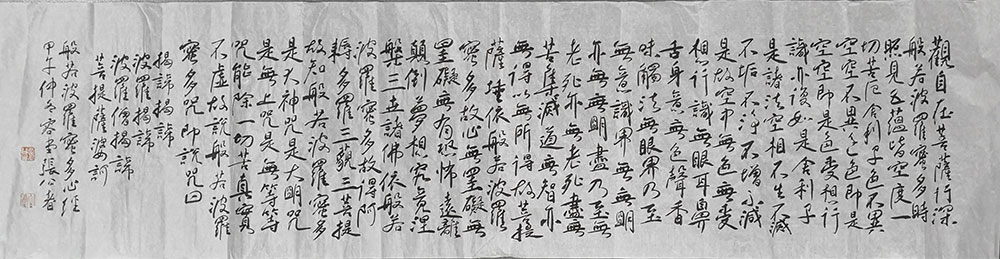 觀自在菩薩行深
般若波羅蜜多時
照見五蘊皆空度一
切苦厄舍利子色不異
空空不異色色即是
空空即是色受想行
識亦復如是舍利子
是諸法空相不生不滅
不垢不淨不增不減
是故空中無色無受
想行識無眼耳鼻
舌身意無色聲香
味觸法無眼界乃至
無意識界無無明
亦無無明盡乃至無
老死亦無老死盡無
苦集滅道無智亦
無得以無所得故菩提
薩埵依般若波羅
蜜多故心無罣礙無
罣礙無有恐怖遠離
顛倒夢想究竟涅
槃三世諸佛依般若
波羅蜜多故得阿
耨多羅三藐三菩提
故知般若波羅蜜多
是大神咒是大明咒
是無上咒是無等等
咒能除一切苦真實
不虛故說般若波羅
蜜多咒即說咒曰
揭諦揭諦
波羅揭諦
波羅僧揭諦
菩提薩婆訶
般若波羅蜜多心經
甲午仲冬張公者